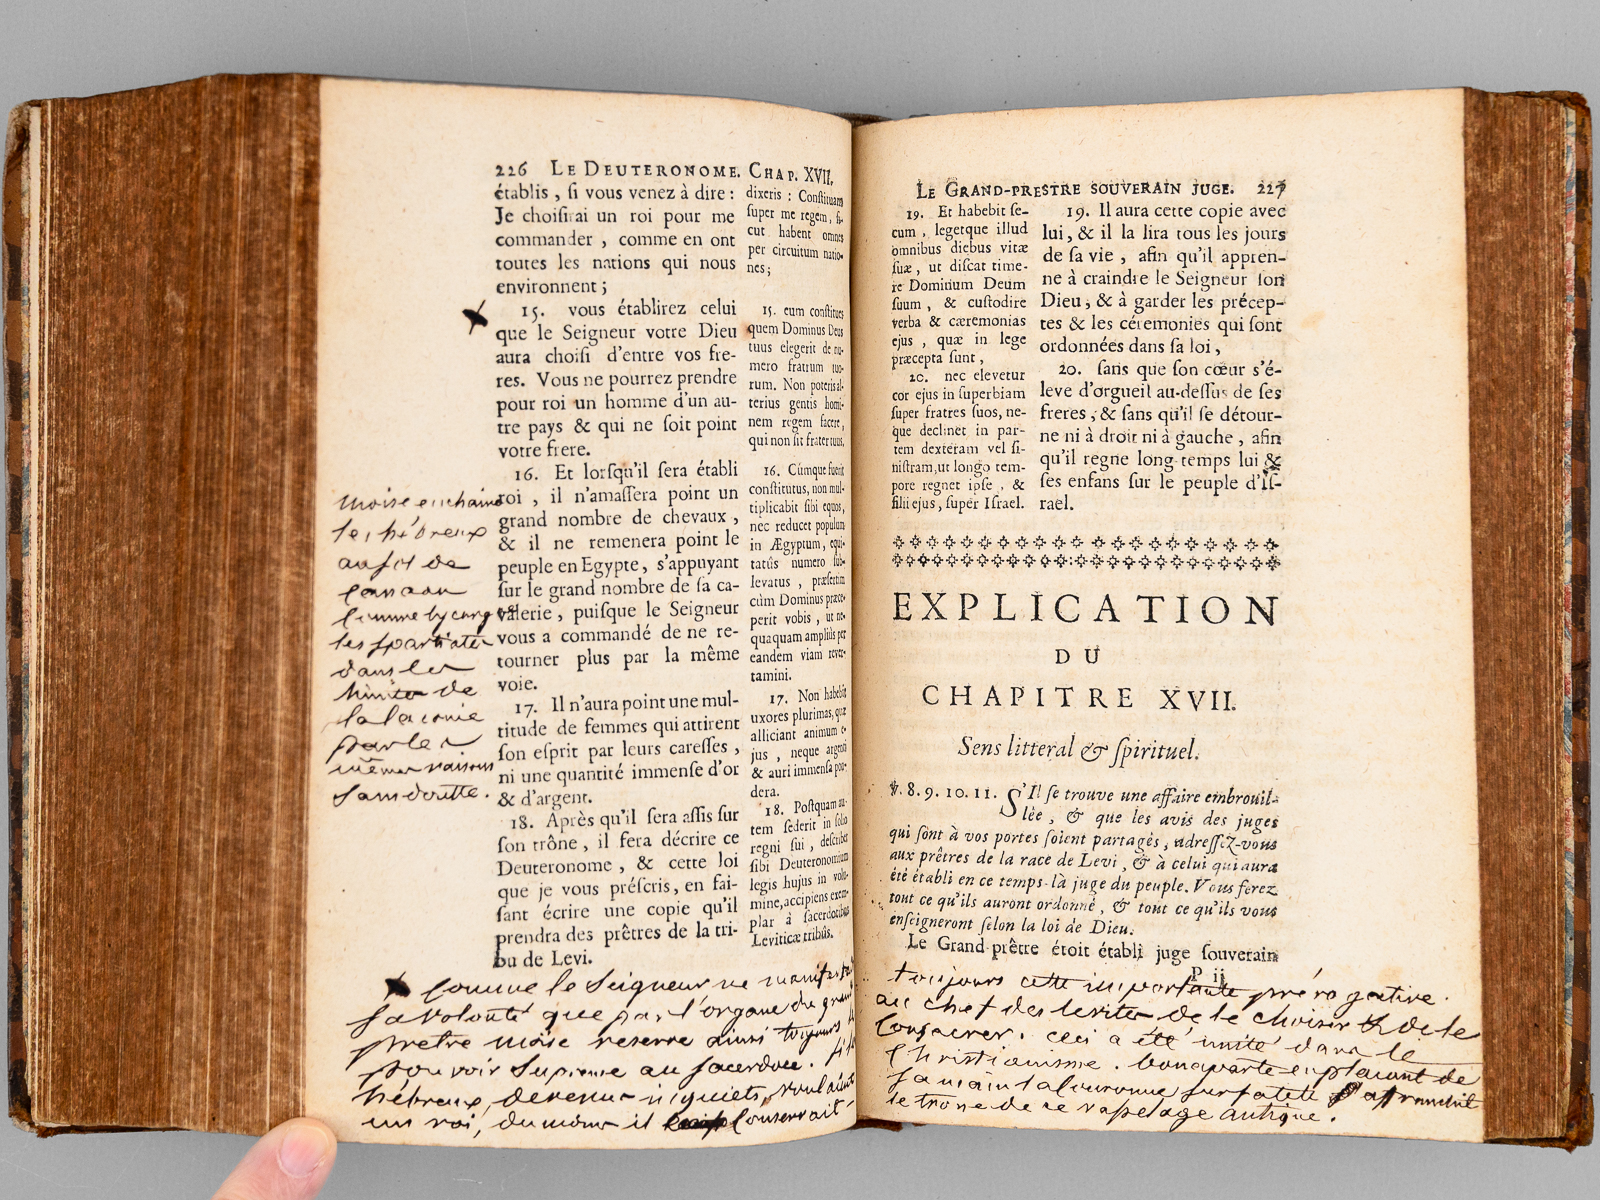 226 LE DEUTERONOME. CHAP. XVII.
établis, ſi vous venez à dire :
Je choiſirai un roi pour me
commander, comme en ont
toutes les nations qui nous
environnent ;
15. vous établirez celui
que le Seigneur votre Dieu
aura choiſi d'entre vos fre-
res. Vous ne pourrez prendre
pour roi un homme d'un au-
tre pays & qui ne ſoit point
votre frere.
16. Et lorſqu'il ſera établi
roi, il n'amaſſera point un
grand nombre de chevaux,
& il ne remenera point le
peuple en Egypte, s'appuyant
ſur le grand nombre de ſa ca-
valerie, puiſque le Seigneur
vous a commandé de ne re-
tourner plus par la même
voie.
17. Il n'aura point une mul-
titude de femmes qui attirent
ſon eſprit par leurs careſſes,
ni une quantité immenſe d'or
& d'argent.
18. Après qu'il ſera aſſis ſur
ſon trône, il fera décrire ce
Deuteronome, & cette loi
que je vous préſcris, en fai-
ſant écrire une copie qu'il
prendra des prêtres de la tri-
bu de Levi.
dixeris : Conſtituam
ſuper me regem, ſi-
cut habent omnes
per circuitum natio-
nes ;
15. eum conſtitues
quem Dominus Deus
tuus elegerit de nu-
mero fratrum tuo-
rum. Non poteris al-
terius gentis homi-
nem regem facere,
qui non ſit frater tuus.
16. Cùmque fuerit
conſtitutus, non mul-
tiplicabit ſibi equos,
nec reducet populum
in Ægyptum, equi-
tatûs numero ſub-
levatus, præſertim
cùm Dominus præce-
perit vobis, ut ne-
quaquam ampliùs per
eandem viam rever-
tamini.
17. Non habebit
uxores plurimas, quæ
alliciant animum e-
jus, neque argenti
& auri immenſa pon-
dera.
18. Poſtquam au-
tem ſederit in ſolio
regni ſui, deſcribet
ſibi Deuteronomium
legis hujus in volu-
mine, accipiens exem-
plar à ſacerdotibus
Leviticæ tribûs.
moise enchaine
les hébreux
au sol de
canaan
comme lycurgue
les spartiates
dans les
limites de
la laconie
par les
mêmes raisons
sans doutte.
comme le Seigneur ne manifestait
sa volonté que par l'organe du grand
pretre moise reserve ainsi toujours le
pouvoir Supreme au sacerdoce. si les
hébreux, devenus inquiets, voulaient
un roi, du moins il conservait
LE GRAND-PRESTRE SOUVERAIN JUGE. 227
19. Et habebit ſe-
cum, legetque illud
omnibus diebus vitæ
ſuæ, ut diſcat time-
re Dominum Deum
ſuum, & cuſtodire
verba & cæremonias
ejus, quæ in lege
præcepta ſunt,
20. nec elevetur
cor ejus in ſuperbiam
ſuper fratres ſuos, ne-
que declinet in par-
tem dexteram vel ſi-
niſtram, ut longo tem-
pore regnet ipſe, &
filii ejus, ſuper Iſrael.
19. Il aura cette copie avec
lui, & il la lira tous les jours
de ſa vie, afin qu'il appren-
ne à craindre le Seigneur ſon
Dieu, & à garder les précep-
tes & les céremonies qui ſont
ordonnées dans ſa loi,
20. ſans que ſon cœur s'é-
leve d'orgueil au-deſſus de ſes
freres, & ſans qu'il ſe détour-
ne ni à droit ni à gauche, afin
qu'il regne long-temps lui &
ſes enfans ſur le peuple d'Iſ-
rael.
EXPLICATION
DU
CHAPITRE XVII.
Sens litteral & ſpirituel.
℣. 8. 9. 10. 11. S'Il ſe trouve une affaire embrouil-
lée, & que les avis des juges
qui ſont à vos portes ſoient partagés, adreſſez-vous
aux prêtres de la race de Levi, & à celui qui aura
été établi en ce temps-là juge du peuple. Vous ferez
tout ce qu'ils auront ordonné, & tout ce qu'ils vous
enſeigneront ſelon la loi de Dieu.
Le Grand-prêtre étoit établi juge ſouverain
P ij
toujours cette importante prérogative.
au chef des levites de le choisir & de le
Consacrer. ceci a été imité dans le
christianisme. bonaparte en placant de
sa main la couronne sur sa tete affranchit
le trone de ce vasselage antique.